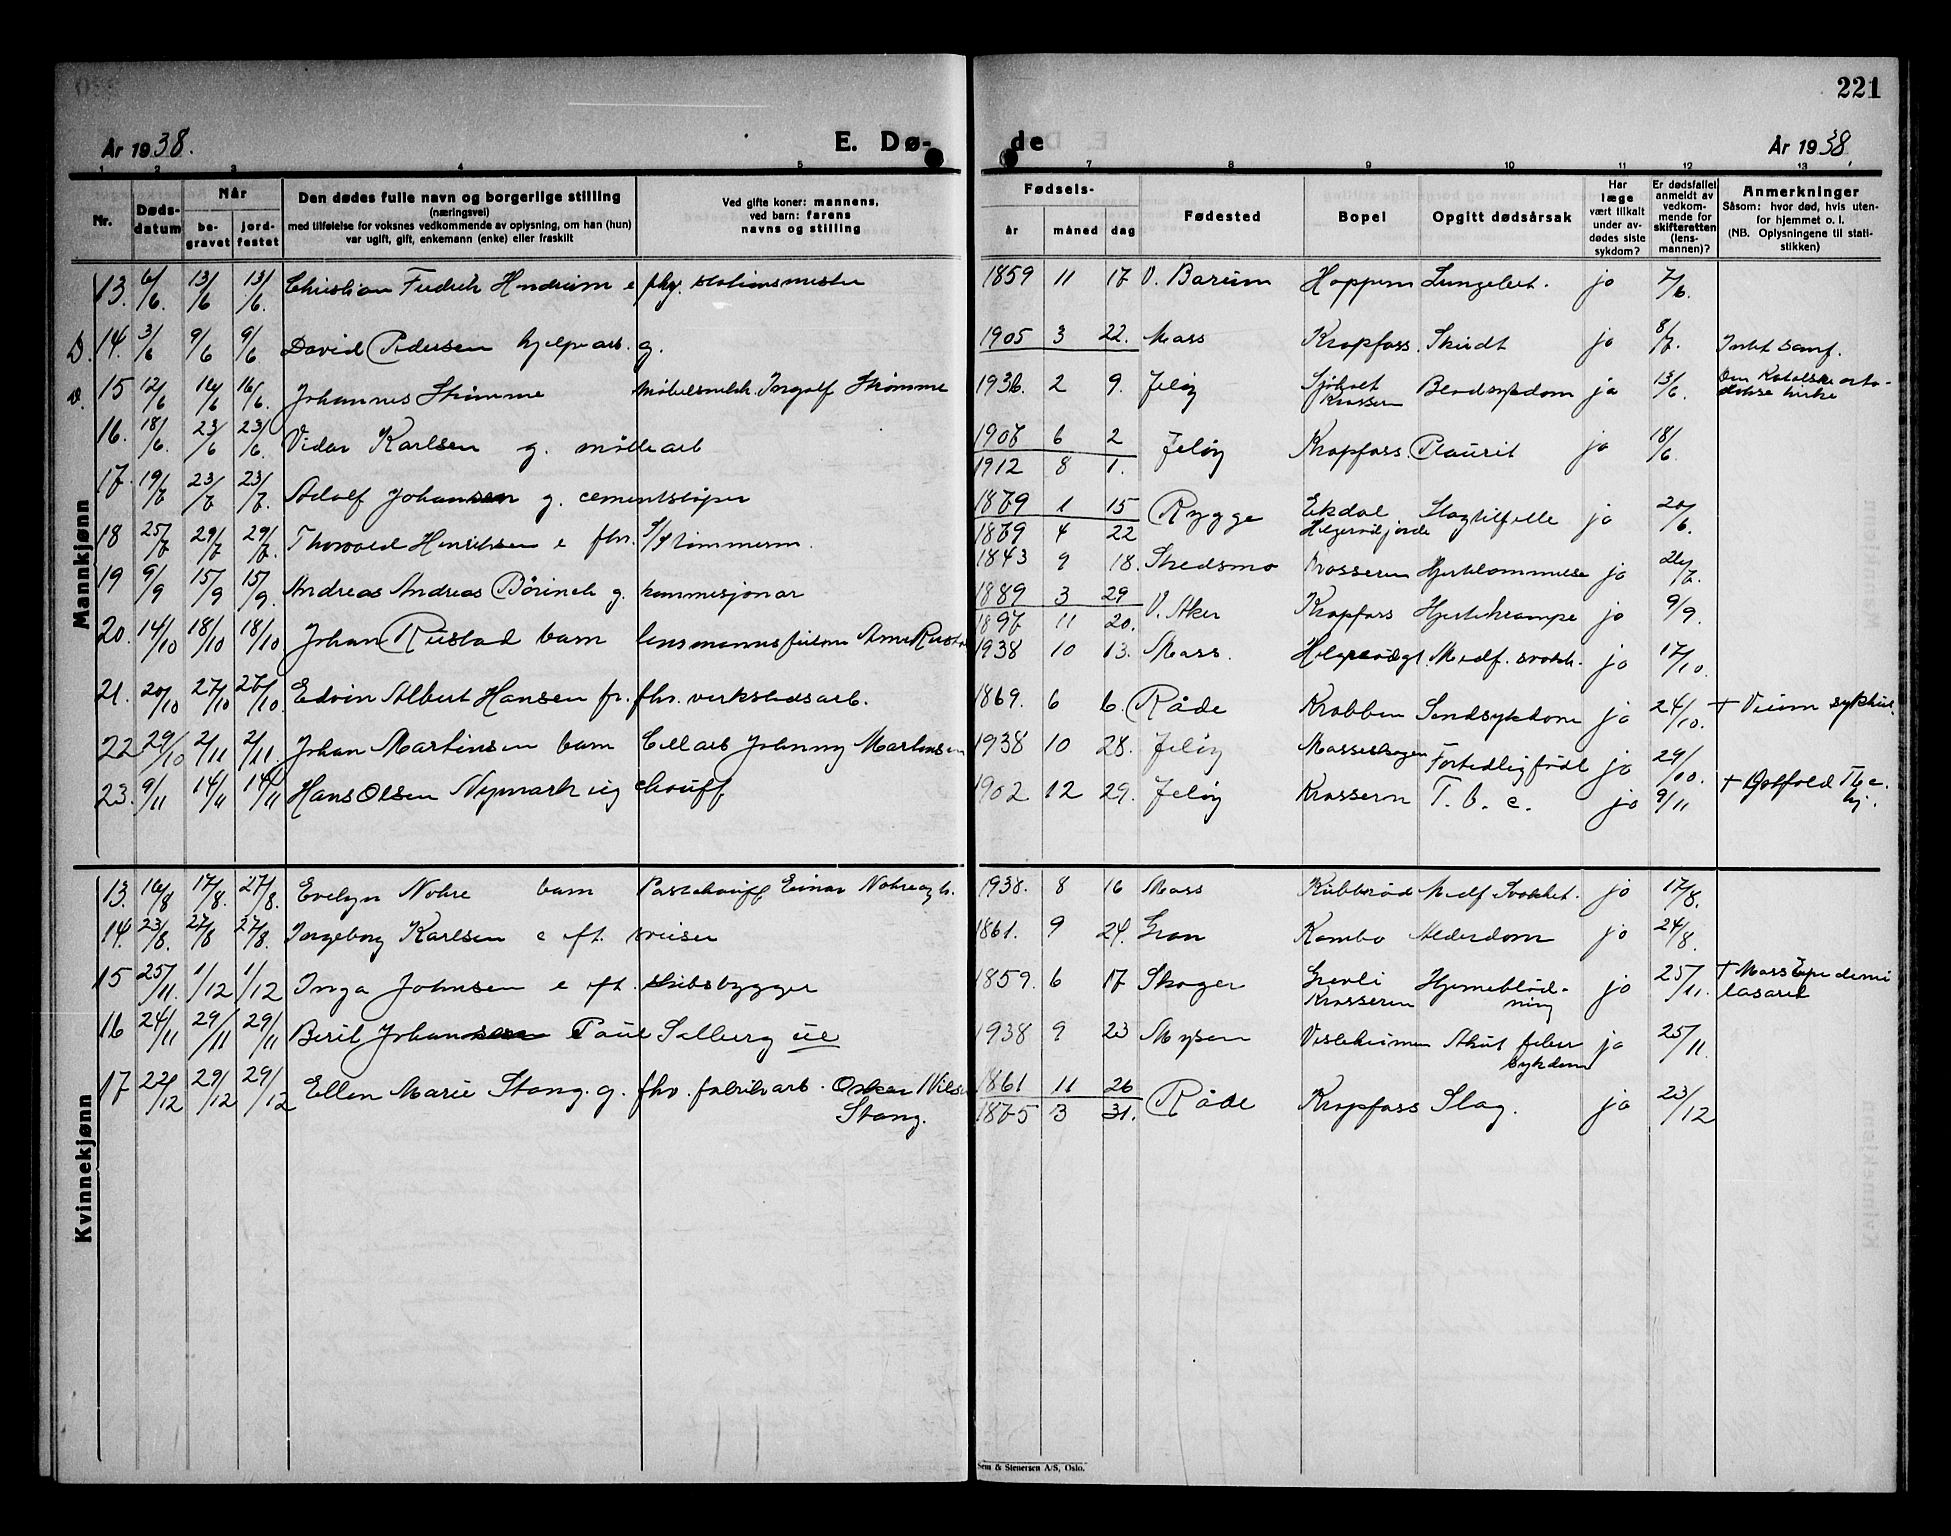 221
År 1938.
E. Dø-
de
År 1938.
1 2 3 4 5 7 8 9 10 11 12 13
Nr.
Døds-
datum
Når
be-
gravet
jord-
festet
Den dødes fulle navn og borgerlige stilling
(næringsvei)
med tilføielse for voksnes vedkommende av oplysning, om han (hun)
var ugift, gift, enkemann (enke) eller fraskilt
Ved gifte koner: mannens,
ved barn: farens
navns og stilling
Fødsels-
år måned dag
Fødested
Bopel
Opgitt dødsårsak
Har
læge
vært tilkalt
under av-
dødes siste
sykdom?
Er dødsfallet
anmeldt av
vedkom-
mende for
skifteretten
(lens-
mannen)?
Anmerkninger
Såsom: hvor død, hvis uten-
for hjemmet o. l.
(NB. Oplysningene til stati-
stikken)
Mannkjønn
13. 6/6 13/6 13/6 Christian Fredrik e fhv. stationsmester 1859 11 17 V. Bærum Hoppern Lungebet. ja 7/6.
D. 14. 3/6 9/6 9/6 David Pedersen hjelpearb. g. 1905 3 22. Moss Kropfoss. Skudt ja 8/7. Intet samf.
D. 15 12/6 16/6 16/6. Johannes Skimme møbelsnekk. Ingolf Skimme 1936. 2 9. Jeløy Sjøhvet Krossern Blodsykdom ja 13/6. Den Katolske orto-
dokse kirke
16. 18/6. 23/6 23/6. Vidar Karlsen g. møllearb 1907 6 2 Jeløy Kropfoss. Pleurit ja 18/6
1912 8 1.
17. 19/7 23/7 23/7. Adolf Johansen g. cementstøper 1879 1 15 Rygge Ekdal Slagtilfelle ja 20/6.
1879 4 22
18 25/7 29/7 29/7. Thorvald Henriksen e fhv. tømmerm. 1843 9 18. Skedsmo Krosseren Hjertelammelse ja 26/7.
19 9/9 15/9 15/9. Andreas Andreas g. kommisjonær 1889 3 29 V. Aker Kropfoss Hjertekrampe ja 9/9.
1897 11 20.
20. 14/10 18/10 18/10 Johan Rustad barn lensmannsfullm. Arne Rustad 1938 10 13. Moss. Medf. svakh. ja 17/10.
21. 20/10 27/10 27/10. Edvin Albert Hansen fr. fhv. verkstedsarb. 1869. 6 6. Råde Krabben Sindsykdom ja 24/10. + Veum sykhus.
22 29/10 2/11 2/11. Johan Martinsen barn Cellarb Johnny Martinsen 1938 10 28. Jeløy Mosseskogen Fortidlig født ja 29/10.
23. 9/11 14/11 14/11 Hans Olsen Nymark ug chauff 1902 12 29. Jeløy Krossern T. b. c. ja 9/11 + Østfold Tbc.
hj.
Kvinnekjønn
13. 16/8 17/8. 27/8. Evelyn Nohre barn Postchauff Einar Nohre 1938. 8 16 Moss Kubberød Medf Svakhet. ja 17/8.
14. 23/8. 27/8 27/8. Ingeborg Karlsen e eft. sveiser 1861. 9 24. Gran Kambo Alderdom ja 24/8.
15 25/11. 1/12 1/12 Inga Johnsen e eft. skibsbygger 1859. 6 17 Skoger Grevli Hjerneblød- ja 25/11. + Moss Epedemi
Krosseren ning lasaret
16 24/11 29/11 29/11 Berit Johansen Paul Solberg ue 1938 9 23 Mysen Akut feber ja 25/11.
sykdom
17 22/12 29/12 29/12 Ellen Marie Stang. g. fhv. fabrikarb. Oskar Nilsen 1861 11 26 Råde Kropfoss Slag. ja 23/12
Stang. 1875 3 31.
Sem & Stenersen A/S, Oslo.